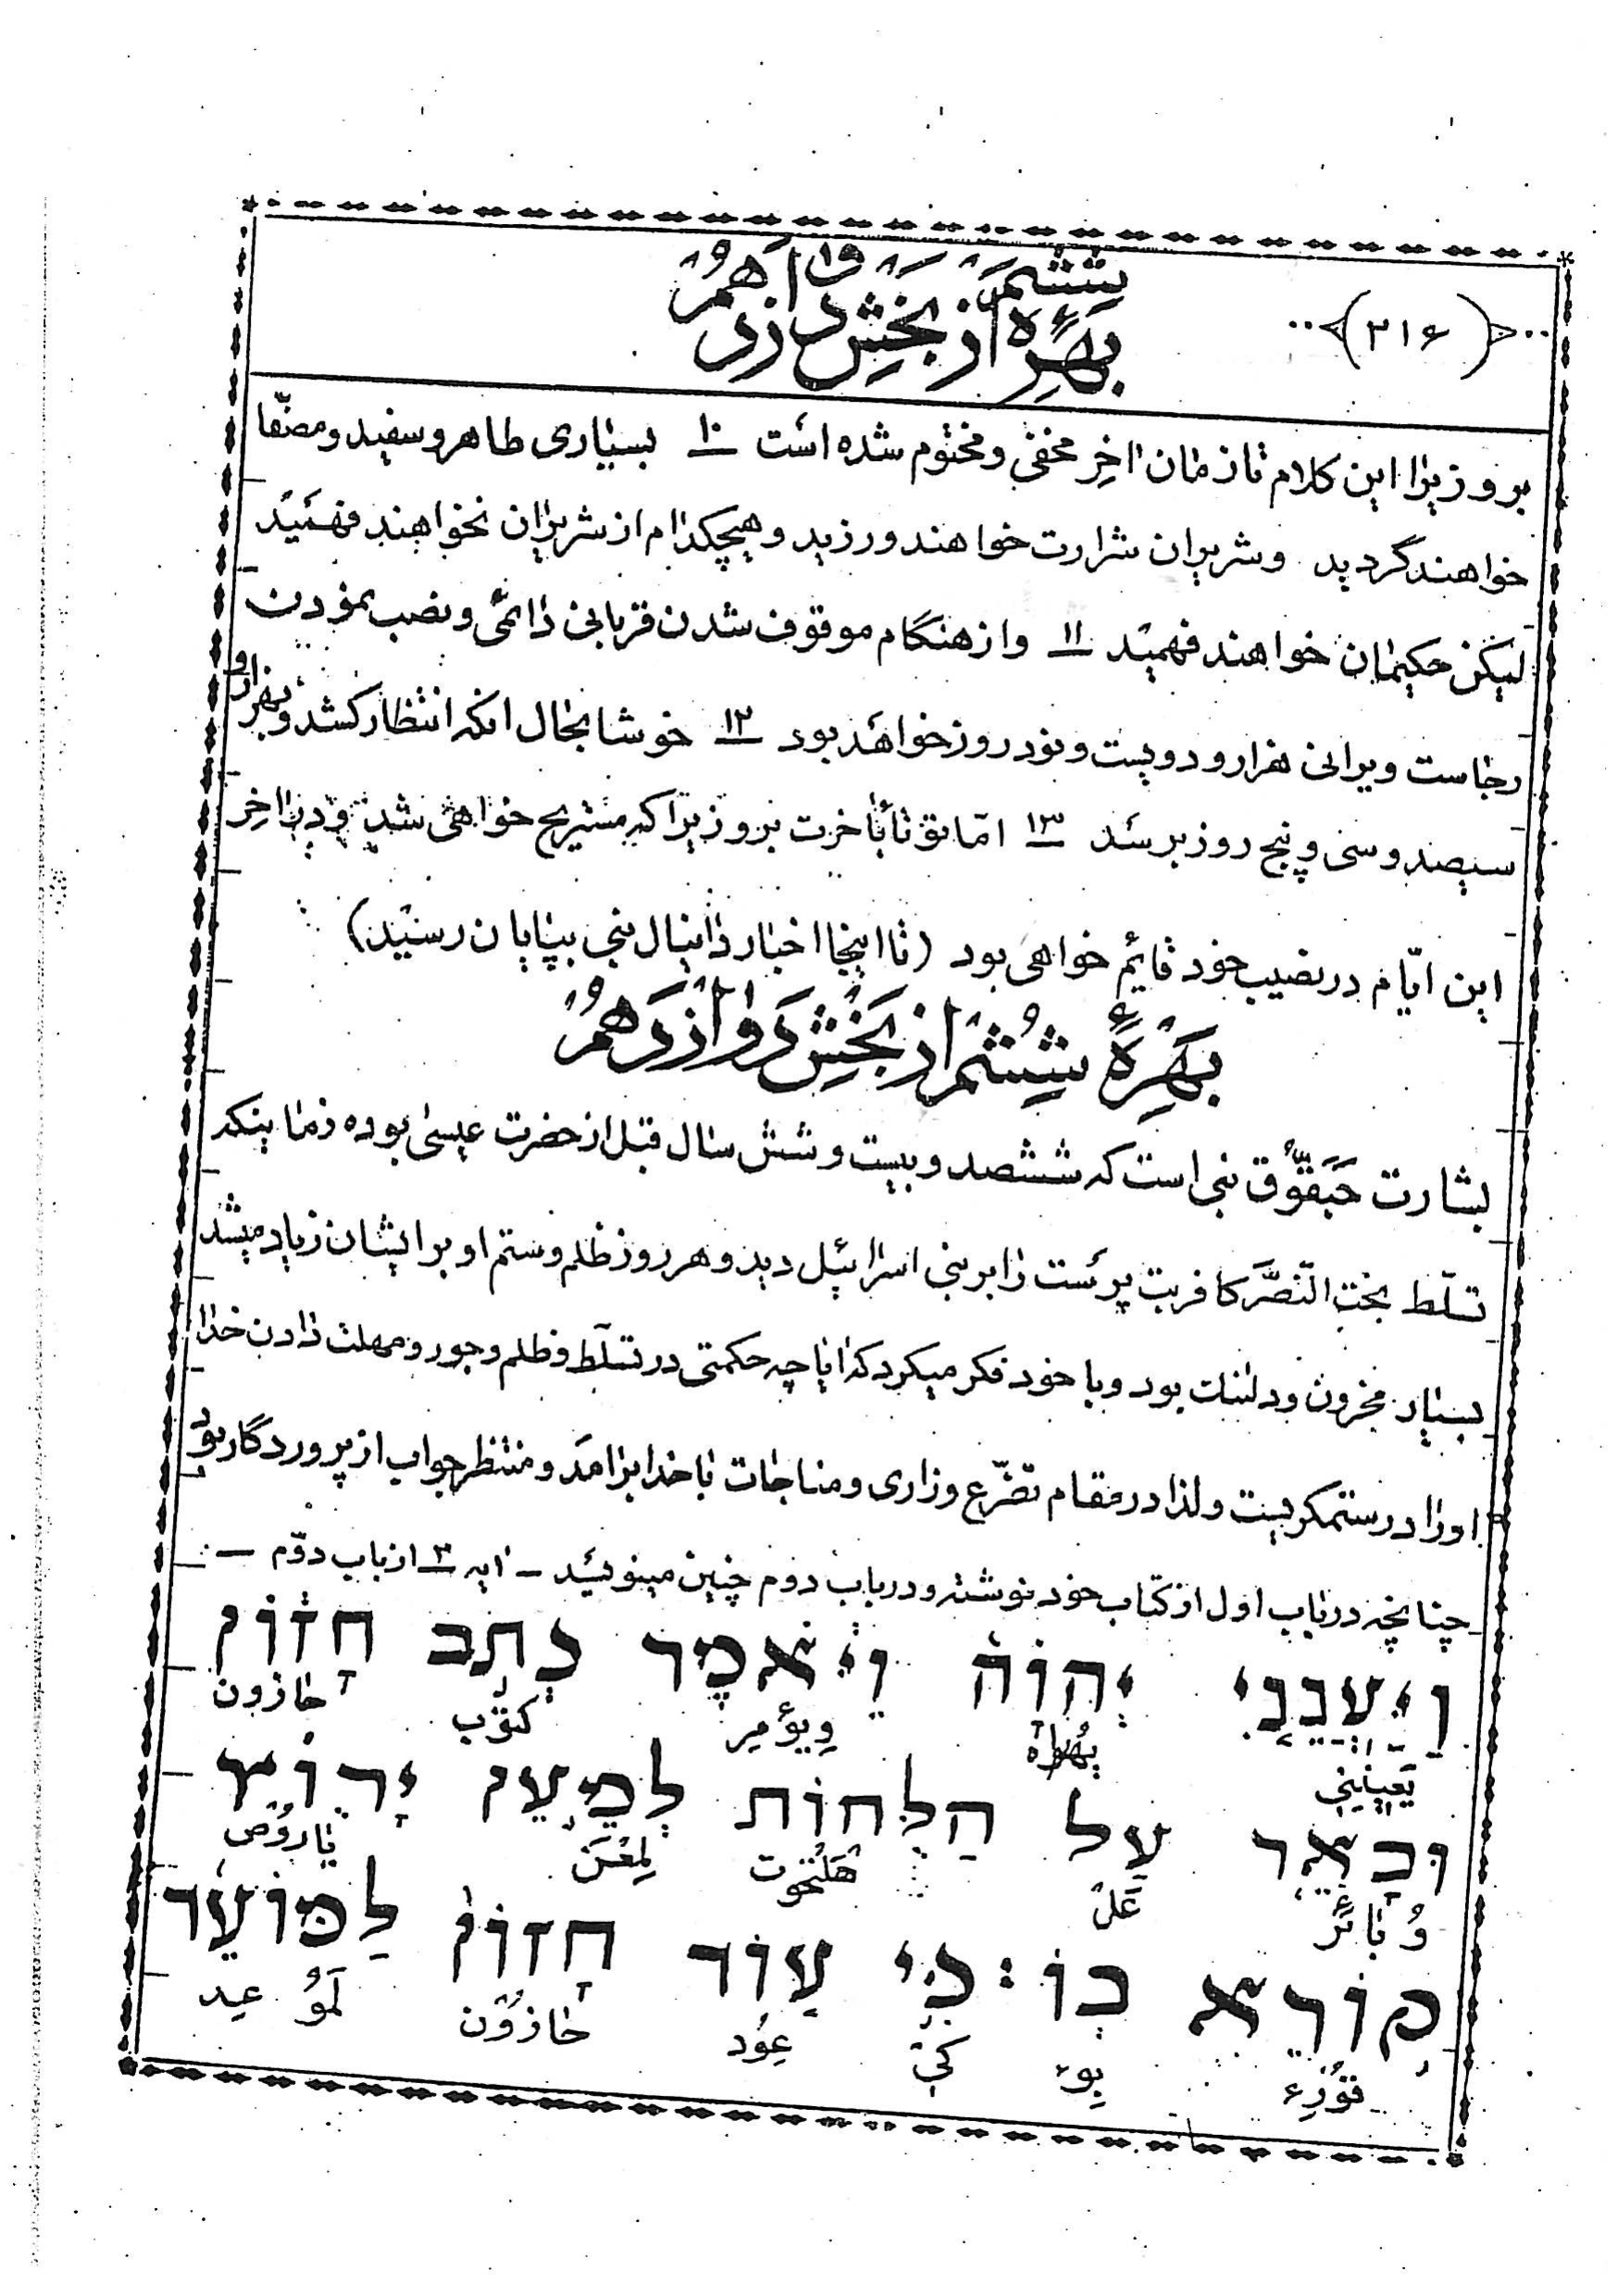 (۲۱۶)
ششم
بهرهٔ از بخش دوازدهم
برو زیرا این کلام تا زمان اخِر مخفی و مختوم شده است ۱۰ بسیاری طاهر و سفید و مصفّا
خواهند گردید و شریران شرارت خواهند ورزید و هیچکدام از شریران نخواهند فهمید
لیکن حکیمان خواهند فهمید ۱۱ و از هنگام موقوف شدن قربانی دائمی و نصب نمودن
رجاست ویرانی هزار و دویست و نود روز خواهد بود ۱۲ خوشا بحال انکه انتظار کشد و بهزار و
سیصد و سی و پنج روز برسد ۱۳ امّا تو تا بآخرت برو زیرا که مستریح خواهی شد و در اخِر
این ایّام در نصیب خود قایم خواهی بود (تا اینجا اخبار دانیال نبی بپایان رسید)
بهرهٔ ششم از بخش دوازدهم
بشارت حَبَقّوُق نبی است که ششصد و بیست و شش سال قبل از حضرت عیسی بوده زمانیکه
تسلّط بخت النّصَّر کافر بت پرست را بر بنی اسرائیل دید و هر روز ظلم و ستم او بر ایشان زیاد میشد
بسیار محزون و دلتنك بود و با خود فکر میکرد که ایا چه حکمتی در تسلّط و ظلم و جور و مهلت دادن خدا
اورا در ستمگریست و لذا در مقام تضرّع و زاری و مناجات با خدا برامد و منتظر جواب از پروردگار بود
چنانچه در باب اول از کتاب خود نوشته و در باب دوم چنین مینویسد – ایه ۲ از باب دوّم –
וַיַּעֲנֵנִי יְהוָה וַיֹּאמֶר כְּתֹב חָזוֹן
یَعَیننِی یهُواه وِیوُمِر کتوُب خازون
וּבָאֵר עַל הַלֻּחוֹת לְמַעַן יָרוּץ
وُ بائر عَل هَلُحوُت لِمَعَن یاروُص
קוֹרֵא בוֹ: כִּי עוֹד חָזוֹן לַמּוֹעֵד
قوُرِء بوِ کی عوُد خازوُن لَموُعِد